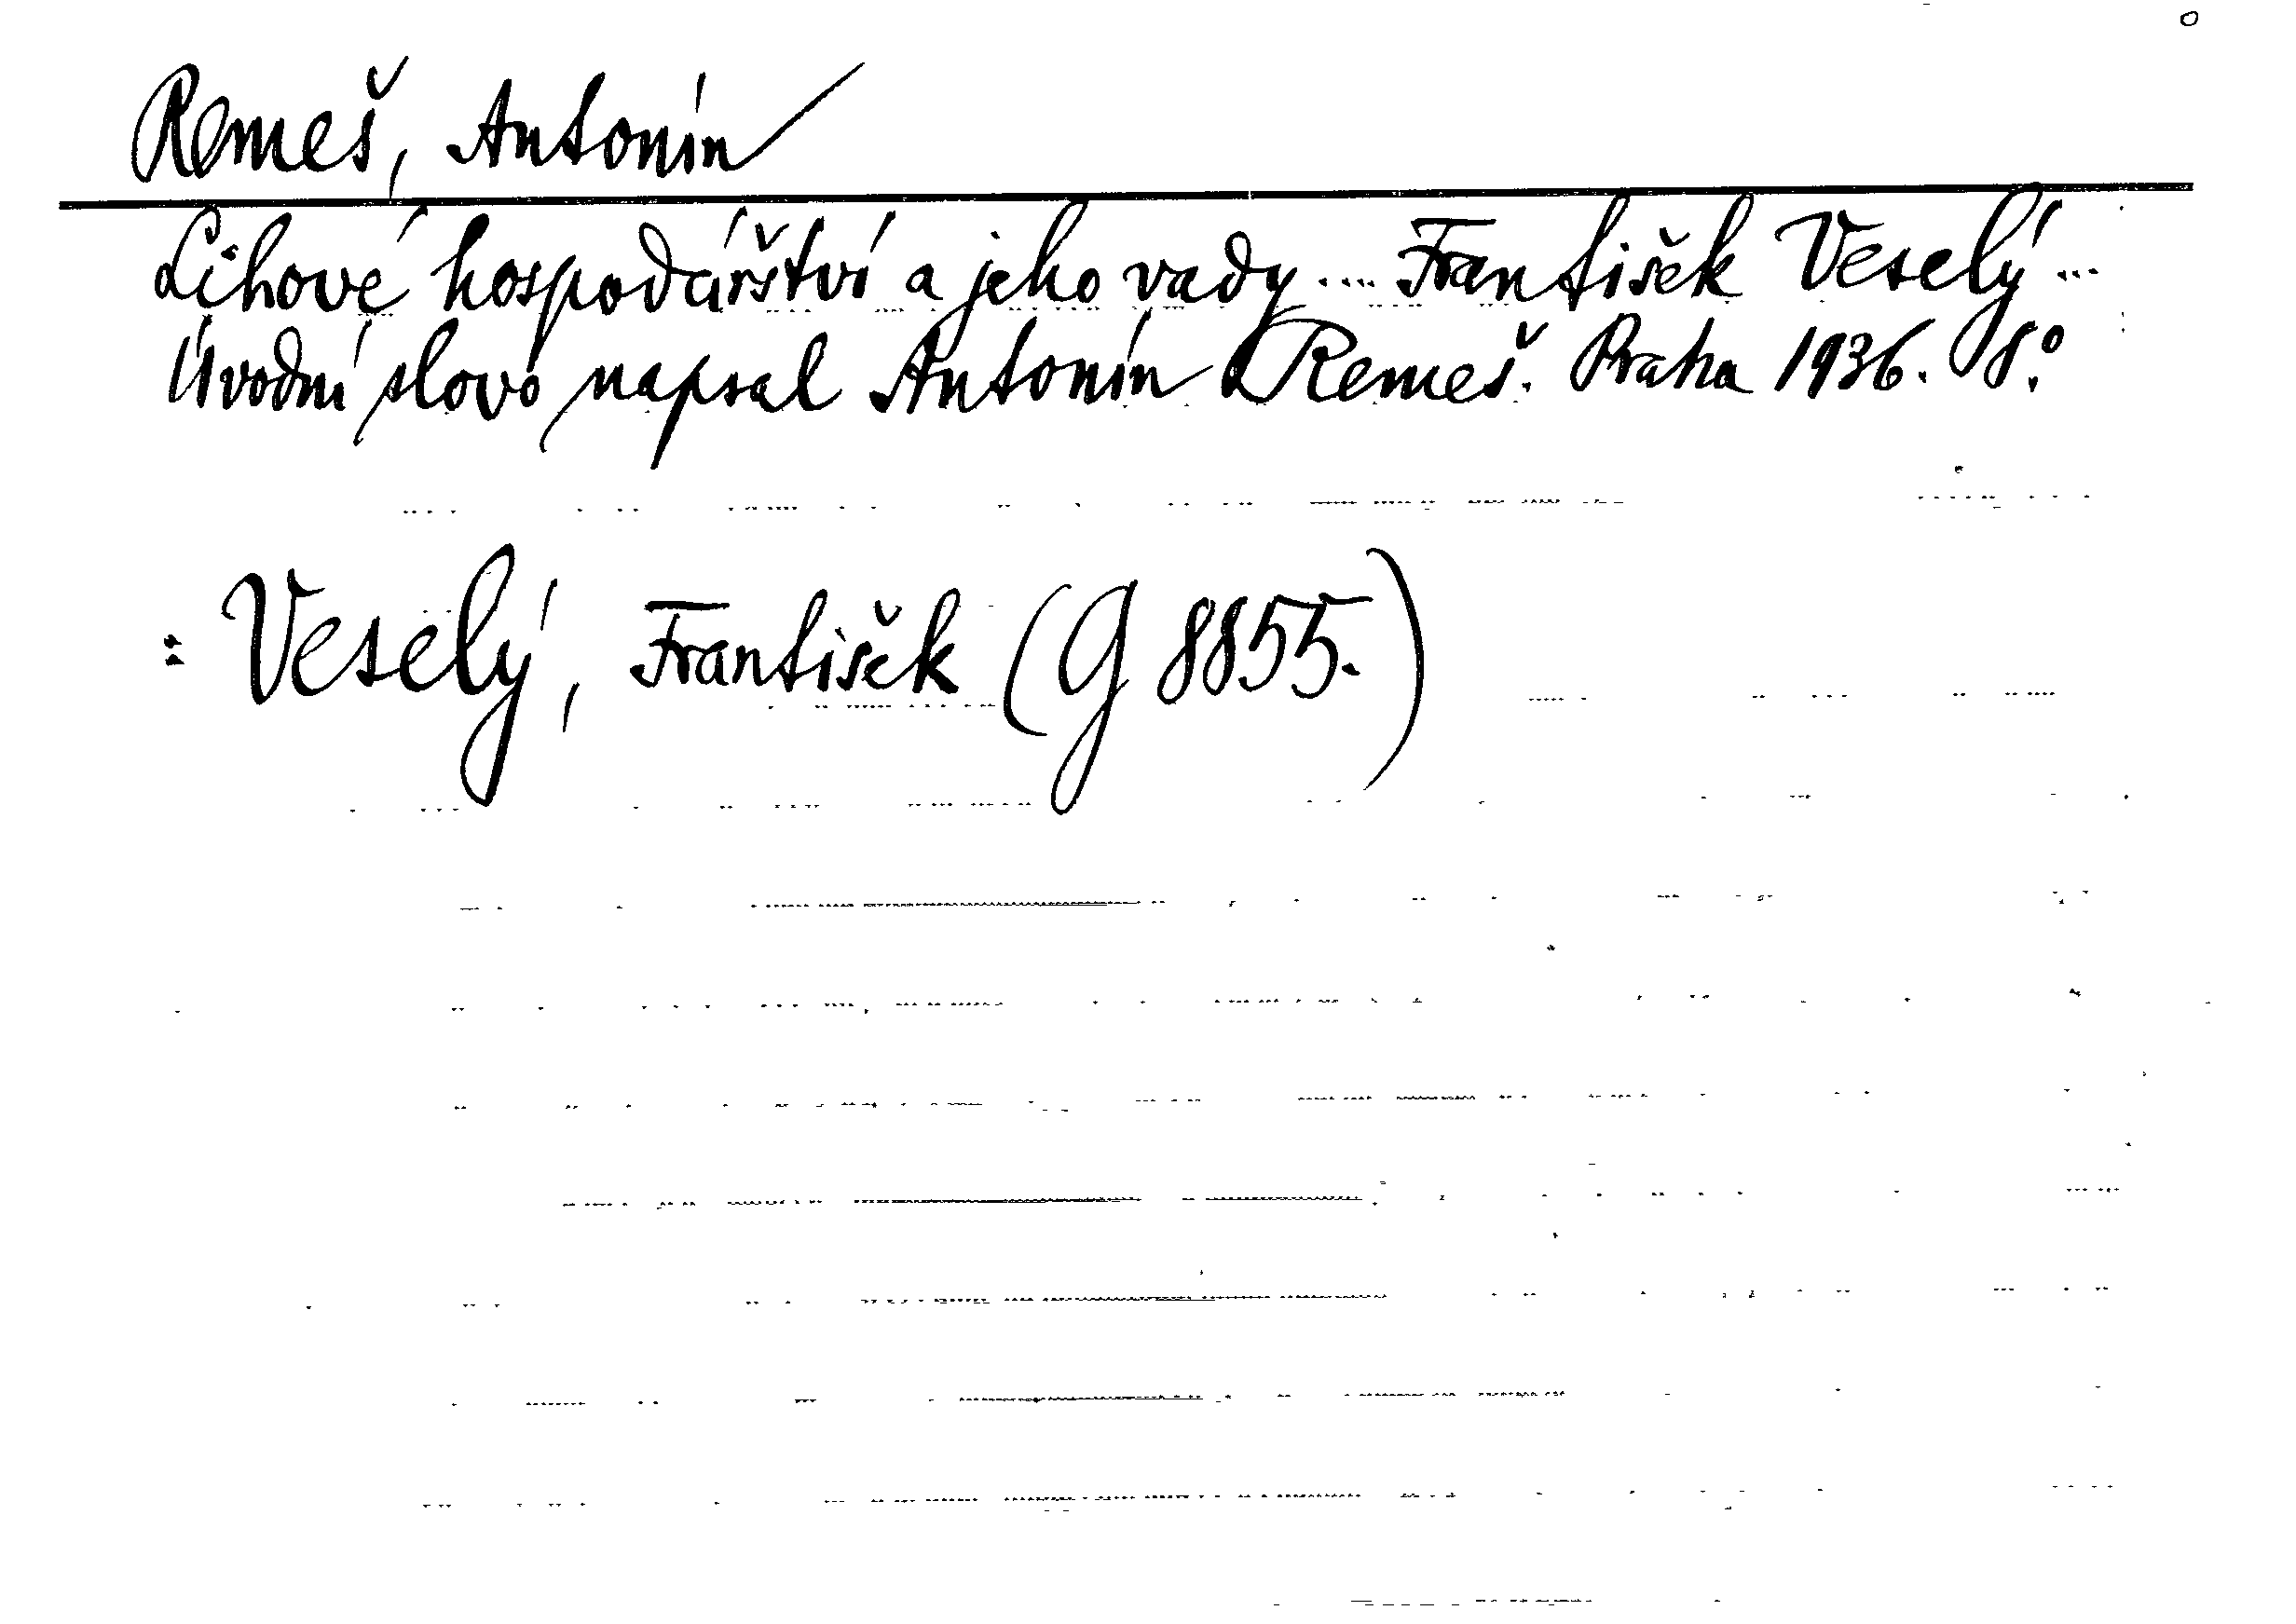 Remeš, Antonín
Lihové hospodářství a jeho vady.... František Veselý...
Úvodní slovo napsal Antonín Remeš. Praha 1936. 8.°
: Veselý, František (G 8855.)